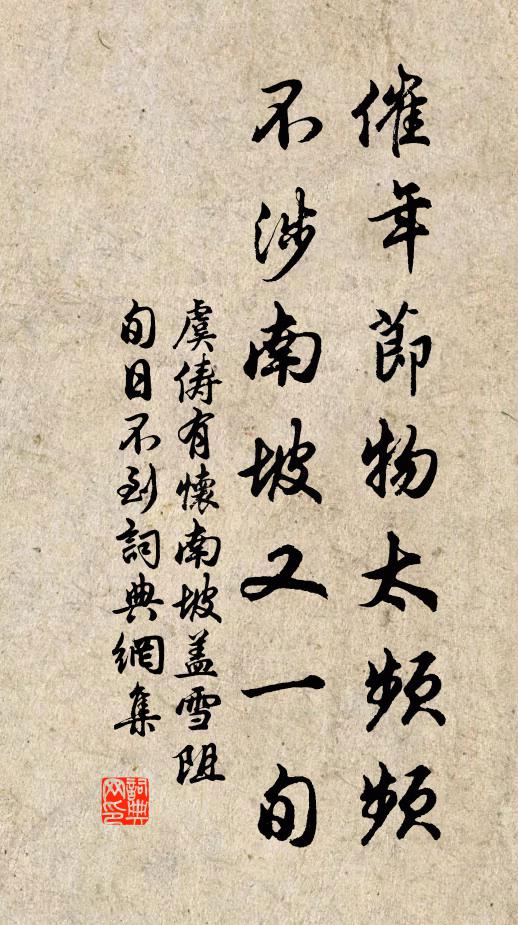 催年節物太頻頻
不涉南坡又一旬
虞儔有懷南坡蓋雪阻
旬日不到詞典網集
詞典
网印